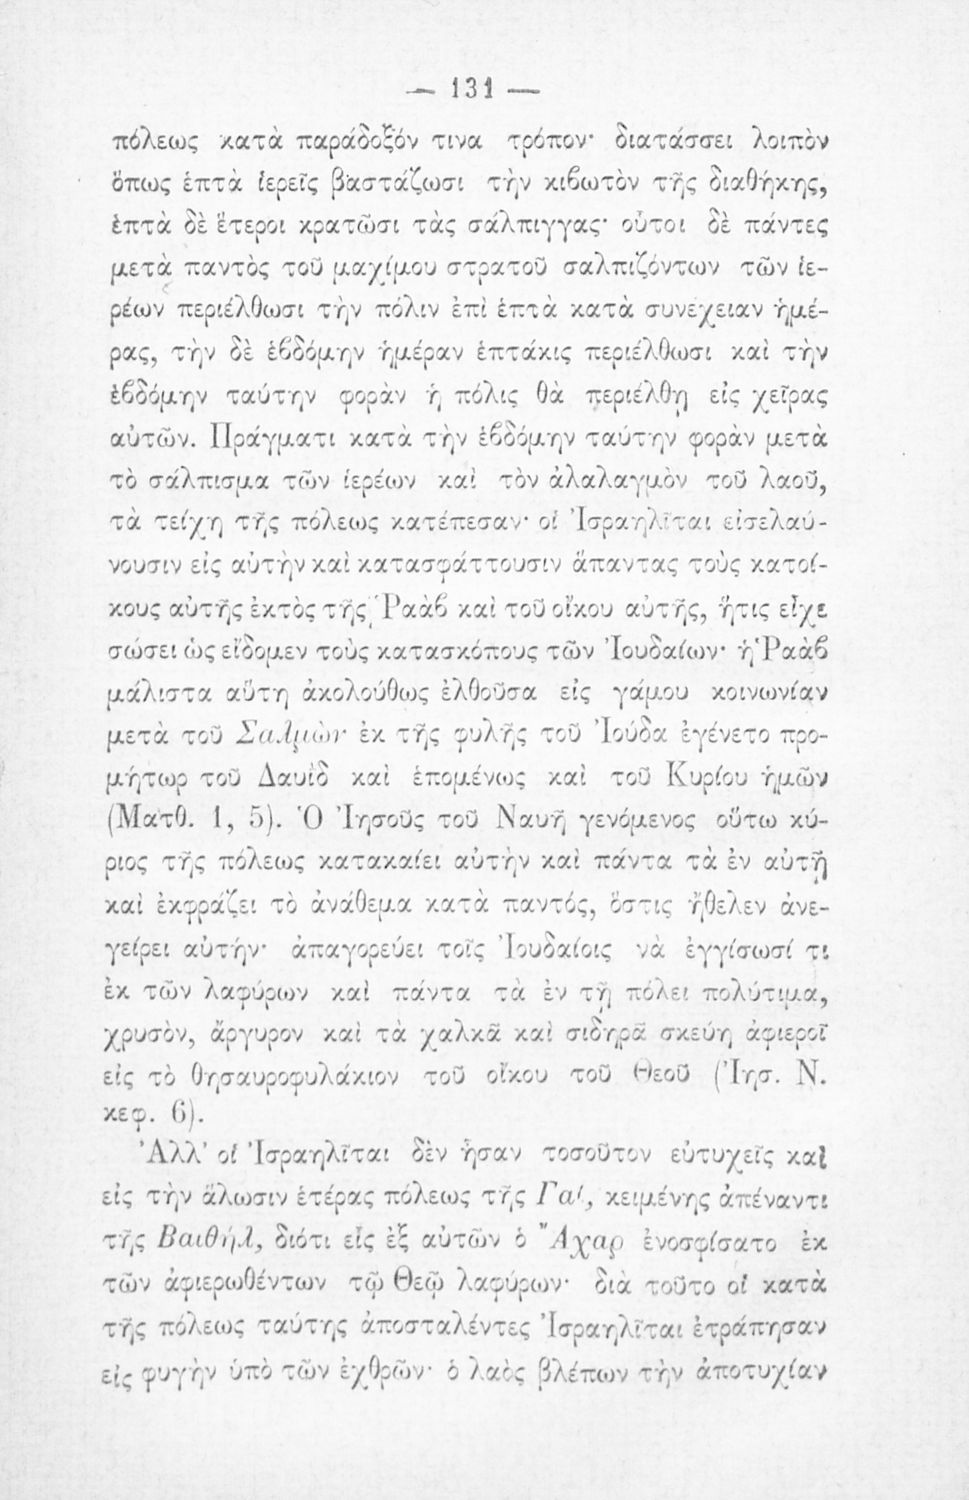 — 131 —
πόλεως κατὰ παράδοξόν τινα τρόπον· διατάσσει λοιπὸν
ὅπως ἑπτὰ ἱερεῖς βαστάζωσι τὴν κιβωτὸν τῆς διαθήκης,
ἑπτὰ δὲ ἕτεροι κρατῶσι τὰς σάλπιγγας· οὗτοι δὲ πάντες
μετὰ παντὸς τοῦ μαχίμου στρατοῦ σαλπιζόντων τῶν ἱε-
ρέων περιέλθωσι τὴν πόλιν ἐπὶ ἑπτὰ κατὰ συνέχειαν ἡμέ-
ρας, τὴν δὲ ἑβδόμην ἡμέραν ἑπτάκις περιέλθωσι καὶ τὴν
ἑβδόμην ταύτην φορὰν ἡ πόλις θὰ περιέλθῃ εἰς χεῖρας
αὐτῶν. Πράγματι κατὰ τὴν ἑβδόμην ταύτην φορὰν μετὰ
τὸ σάλπισμα τῶν ἱερέων καὶ τὸν ἀλαλαγμὸν τοῦ λαοῦ,
τὰ τείχη τῆς πόλεως κατέπεσαν· οἱ Ἰσραηλῖται εἰσελαύ-
νουσιν εἰς αὐτὴν καὶ κατασφάττουσιν ἅπαντας τοὺς κατοί-
κους αὐτῆς ἐκτὸς τῆς Ῥαὰβ καὶ τοῦ οἴκου αὐτῆς, ἥτις εἶχε
σώσει ὡς εἴδομεν τοὺς κατασκόπους τῶν Ἰουδαίων· ἡ Ῥαὰβ
μάλιστα αὕτη ἀκολούθως ἐλθοῦσα εἰς γάμου κοινωνίαν
μετὰ τοῦ Σαλμὼν ἐκ τῆς φυλῆς τοῦ Ἰούδα ἐγένετο προ-
μήτωρ τοῦ Δαυῒδ καὶ ἑπομένως καὶ τοῦ Κυρίου ἡμῶν
(Ματθ. 1, 5). Ὁ Ἰησοῦς τοῦ Ναυῆ γενόμενος οὕτω κύ-
ριος τῆς πόλεως κατακαίει αὐτὴν καὶ πάντα τὰ ἐν αὐτῇ
καὶ ἐκφράζει τὸ ἀνάθεμα κατὰ παντός, ὅστις ἤθελεν ἀνε-
γείρει αὐτήν· ἀπαγορεύει τοῖς Ἰουδαίοις νὰ ἐγγίσωσί τι
ἐκ τῶν λαφύρων καὶ πάντα τὰ ἐν τῇ πόλει πολύτιμα,
χρυσὸν, ἄργυρον καὶ τὰ χαλκᾶ καὶ σιδηρᾶ σκεύη ἀφιεροῖ
εἰς τὸ θησαυροφυλάκιον τοῦ οἴκου τοῦ Θεοῦ (Ἰησ. Ν.
κεφ. 6).
Ἀλλ' οἱ Ἰσραηλῖται δὲν ἦσαν τοσοῦτον εὐτυχεῖς καὶ
εἰς τὴν ἅλωσιν ἑτέρας πόλεως τῆς Γαί, κειμένης ἀπέναντι
τῆς Βαιθήλ, διότι εἷς ἐξ αὐτῶν ὁ Ἄχαρ ἐνοσφίσατο ἐκ
τῶν ἀφιερωθέντων τῷ Θεῷ λαφύρων· διὰ τοῦτο οἱ κατὰ
τῆς πόλεως ταύτης ἀποσταλέντες Ἰσραηλῖται ἐτράπησαν
εἰς φυγὴν ὑπὸ τῶν ἐχθρῶν· ὁ λαὸς βλέπων τὴν ἀποτυχίαν